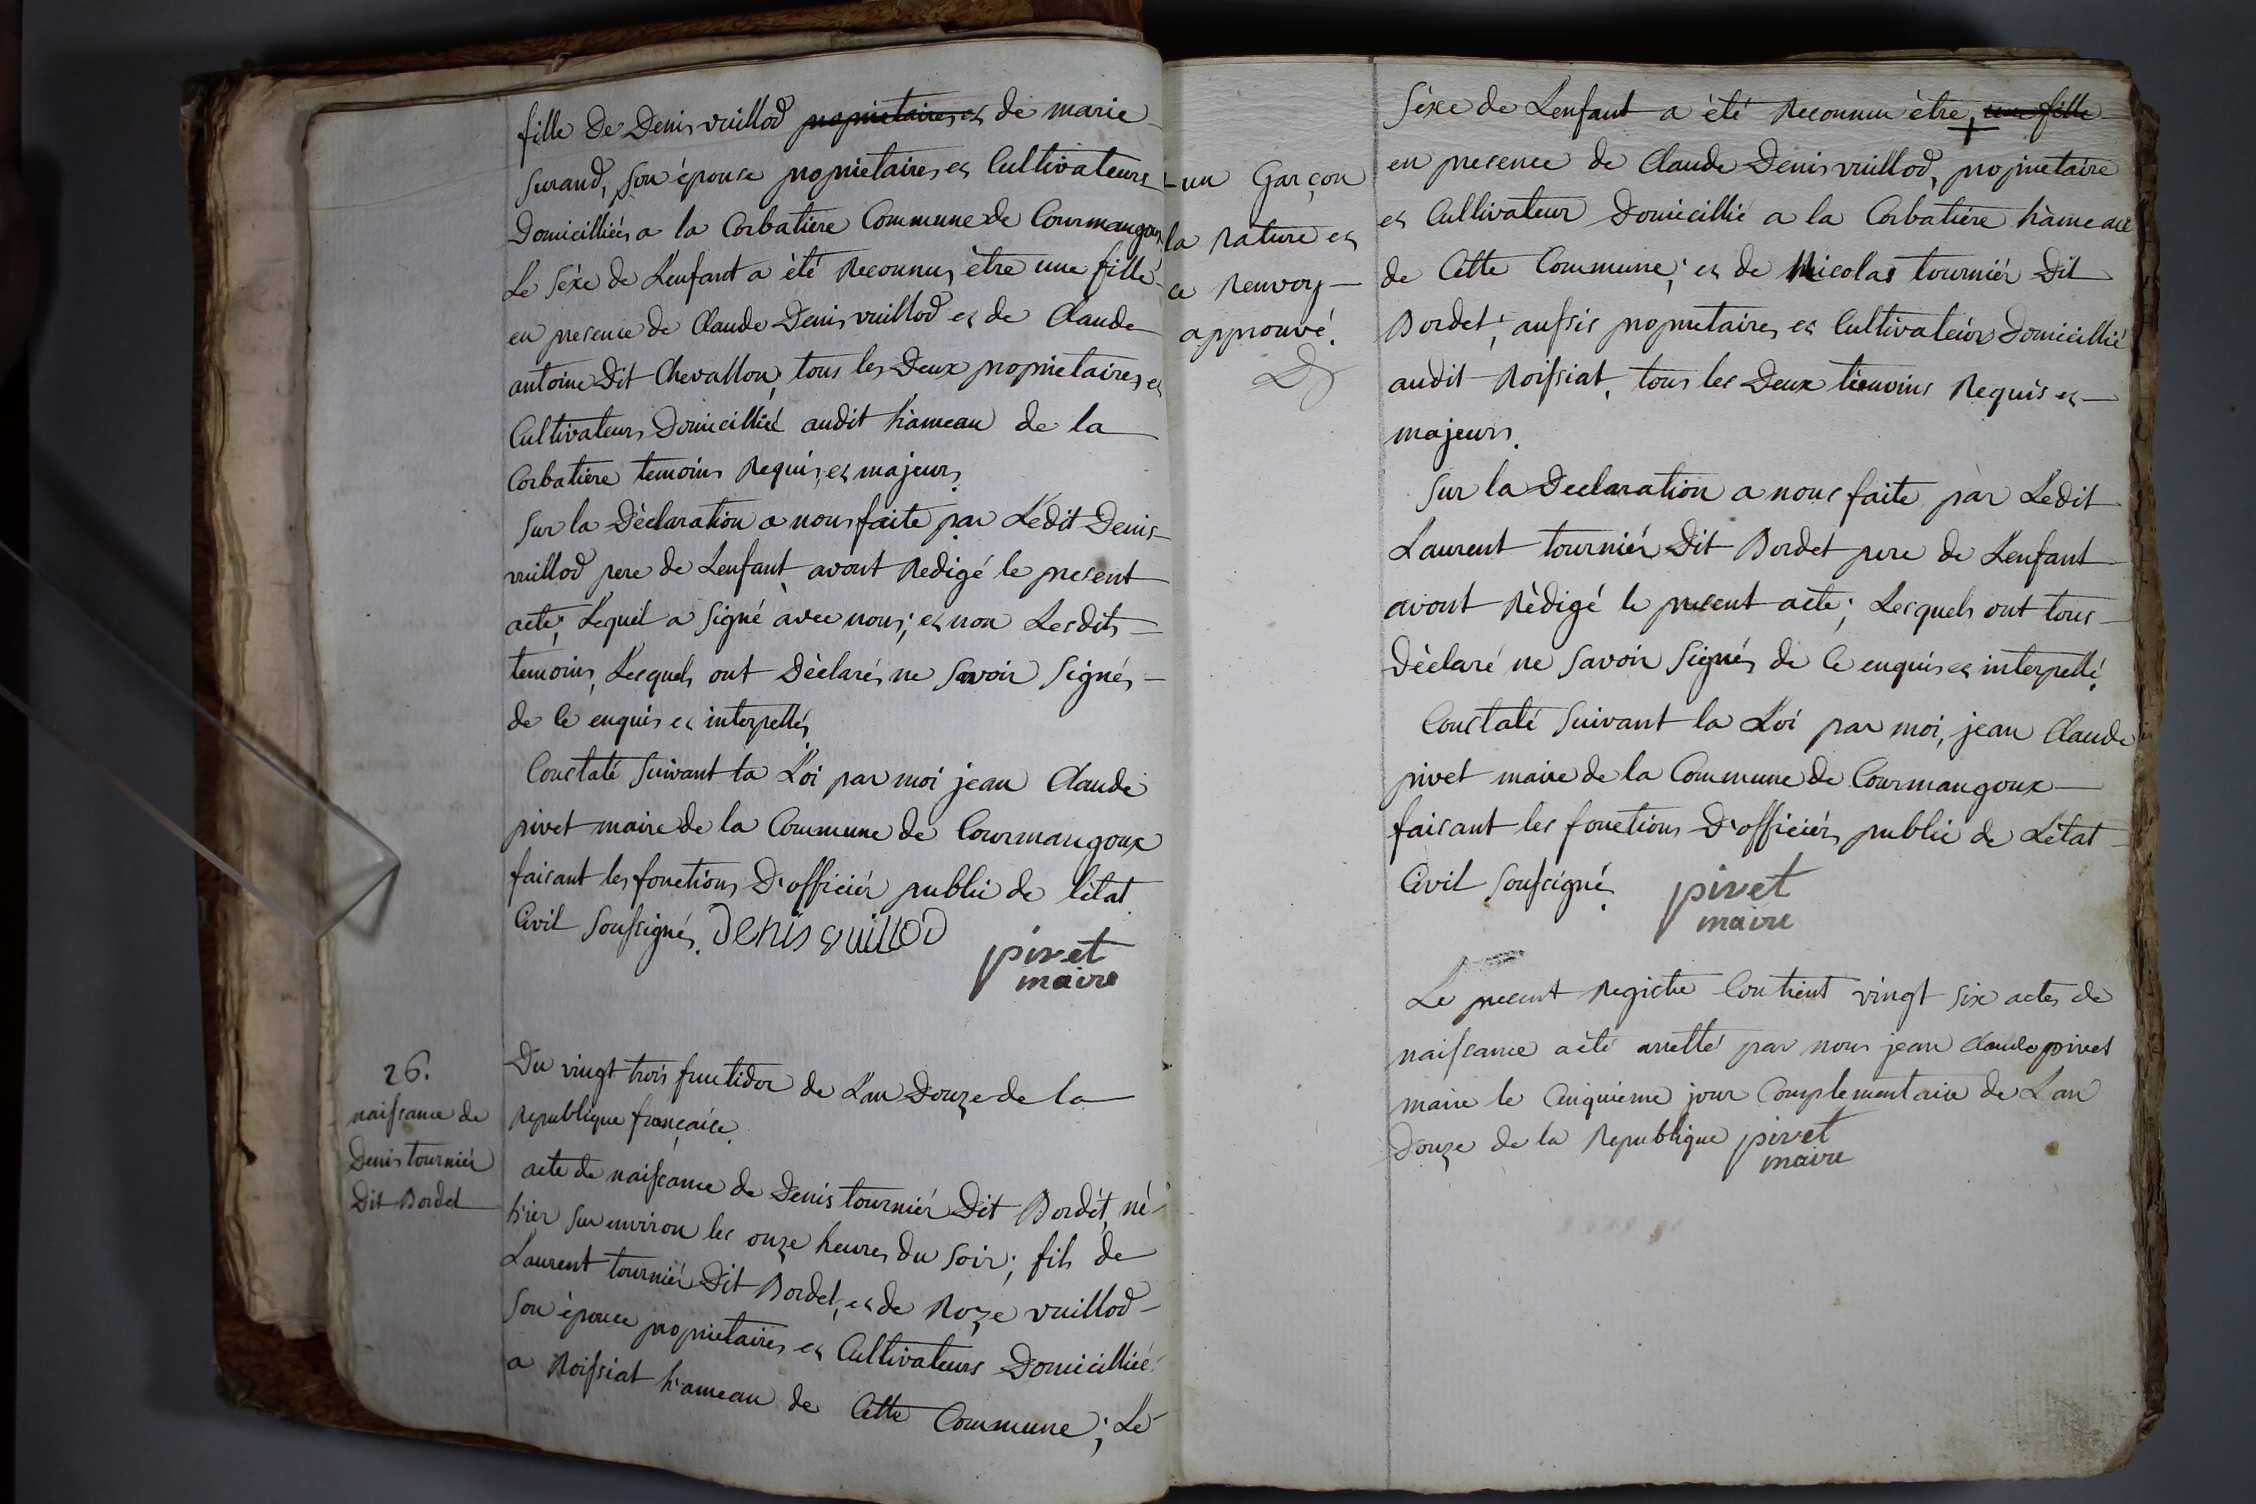 fille de Denis vuillod propietaires et de marie
surand, son épouse propriétaires et Cultivateurs
Domicilliés a la Corbatiere Commune de Courmangoux
Le séxe de L'enfant a èté Reconnu, ètre une fille
en presence de Claude Denis vuillod et de Claude
antoine Dit Chevallon, tous les Deux propriétaires et
Cultivateurs Domicilliés audit hameau de la
Corbatiere temoins Requis, et majeurs.
Sur la Dèclaration a nous faite par Ledit Denis
vuillod pere de Lenfant avont Redigé le present
acte; Lequel a signé avec nous; et non Lesdits
temoins, Lesquels ont Dèclarés ne savoir signés
de Ce enquis et interpellés,
Constaté suivant la Loi par moi jean Claude
pivet maire de la Commune de Courmangoux
faisant les fonctions D'officiér public de l'état
Civil soussignés. Denis vuillod
pivet
maire
26.
naissance de
Denis tourniér
Dit Bordet
Du vingt trois fructidor de L'an Douze de la
Republique française.
acte de naissance de Denis tourniér Dit Bordét, né
h'ier sur environ les onze heures du soir; fils de
Laurent tourniér Dit Bordet, et de Roze vuillod
son épouce propriétaires et Cultivateurs Domicilliés
a Roissiat h'ameau de Cette Commune; Le
- un Garçon
la Rature et
ce Renvoy
approuvé.
Séxe de Lenfant a èté Reconnu ètre, + une fille
en presence de Claude Denis vuillod, propriétaire
et Cultivateur Domicillié a la Corbatiére hàmeau
de Cette Commune; et de Nicolas tourniér Dit
Bordet; aussis propriétaires et Cultivateúr Domicillié
audit Roissiat, tous les Deux témoins Requis et
majeurs.
Sur la Declaration a nous faite pàr Ledit
Laurent tourniér Dit Bordet pere de Lenfant
avont Rèdigé le present acte; Lesquels ont tous
Dèclaré ne savoir signés de Ce enquis et interpellé.
Constaté suivant la Loi par moi, jean Claude
pivet maire de la Commune de Courmangoux
faisant les fonctions D'officiér public de L'état
Civil soussigné.
pivet
maire
Le present Registre Contient vingt six actes de
naissance a èté arretté par nous jean Claude pivet
maire le Cinquieme jour Complementaire de L'an
Douze de la Republique pivet
maire